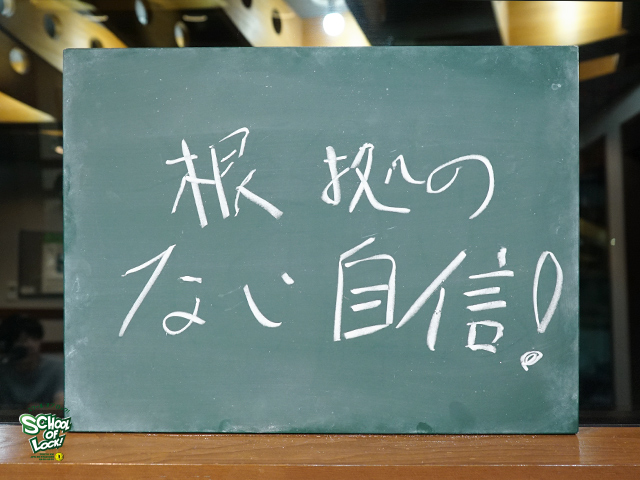 根拠の
ない自信!
SCHOOL
OF
LOCK!